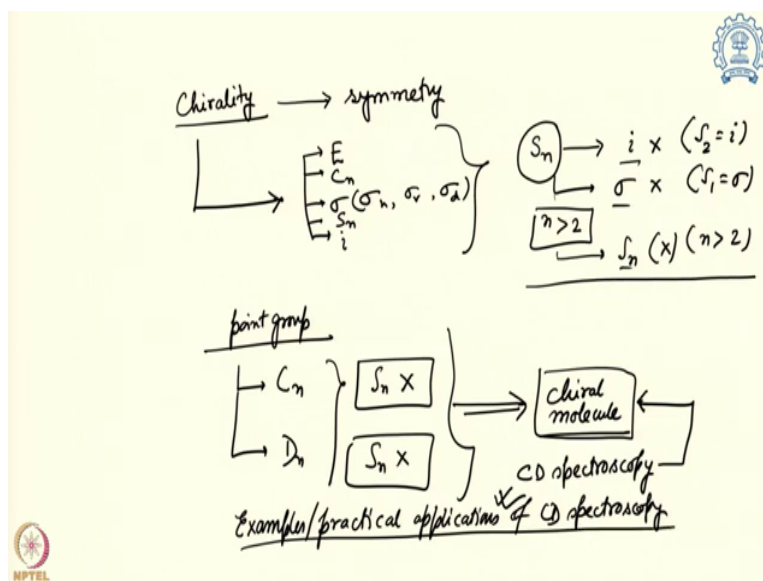 Chirality → symmetry
→ E
→ Cn
→ σ (σh, σv, σd)
→ Sn
→ i
Sn → i × (S2 = i)
→ σ × (S1 = σ)
n>2
→ Sn (×) (n>2)
point group
→ Cn
→ Dn
Sn ×
Sn ×
⇒ Chiral molecule
CD spectroscopy
Examples/practical applications of CD spectroscopy
NPTEL